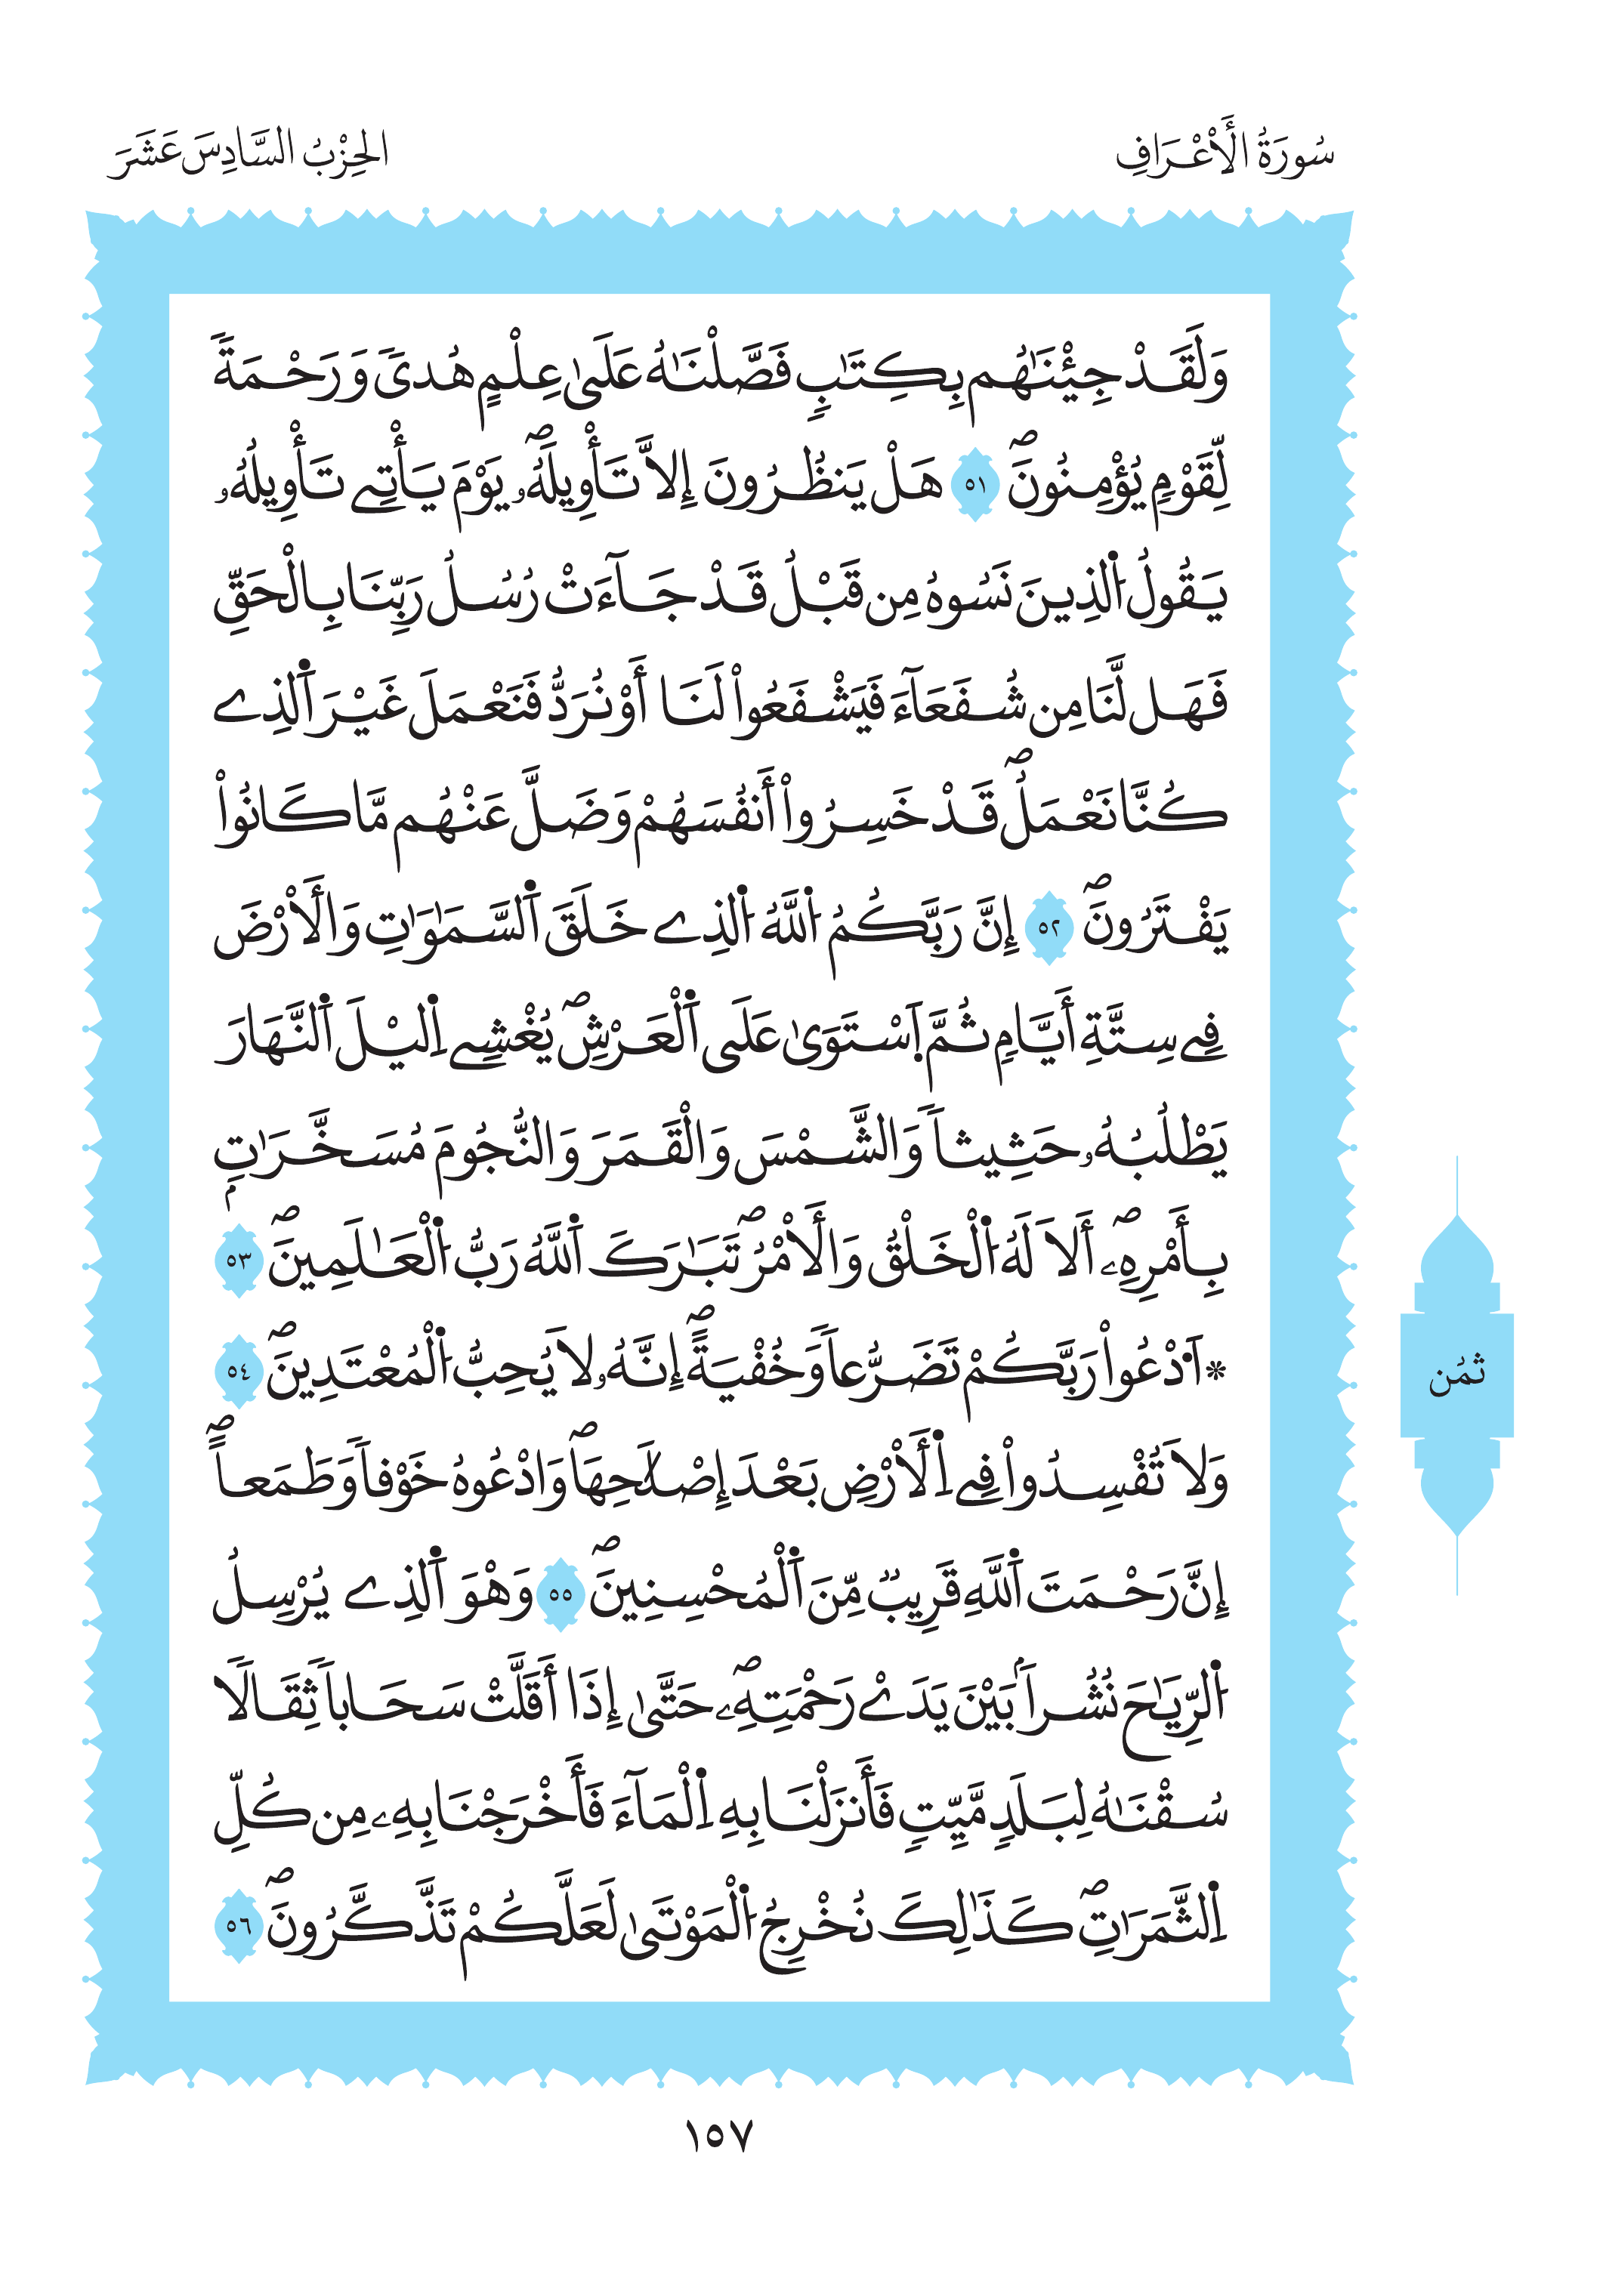 سُورَةُ الْأَعْرَافِ
الحِزْبُ السَّادِسَ عَشَرَ
وَلَقَدْ جِئْنَٰهُم بِكِتَٰبٖ فَصَّلْنَٰهُ عَلَىٰ عِلْمٍ هُدىٗ وَرَحْمَةٗ
لِّقَوْمٖ يُؤْمِنُونَۖ ٥١ هَلْ يَنظُرُونَ إِلاَّ تَأْوِيلَهُۥۖ يَوْمَ يَأْتِے تَأْوِيلُهُۥ
يَقُولُ اُ۬لذِينَ نَسُوهُ مِن قَبْلُ قَدْ جَآءَتْ رُسُلُ رَبِّنَا بِالْحَقِّ
فَهَل لَّنَا مِن شُفَعَآءَ فَيَشْفَعُواْ لَنَا أَوْ نُرَدُّ فَنَعْمَلَ غَيْرَ اَ۬لذِے
كُنَّا نَعْمَلُۖ قَدْ خَسِرُواْ أَنفُسَهُمْ وَضَلَّ عَنْهُم مَّا كَانُواْ
يَفْتَرُونَۖ ٥٢ إِنَّ رَبَّكُمُ اُ۬للَّهُ اُ۬لذِے خَلَقَ اَ۬لسَّمَٰوَٰتِ وَالَارْضَ
فِے سِتَّةِ أَيَّامٖ ثُمَّ اَ۪سْتَوَىٰ عَلَى اَ۬لْعَرْشِۖ يُغْشِے اِ۬ليْلَ اَ۬لنَّهَارَ
يَطْلُبُهُۥ حَثِيثاٗ وَالشَّمْسَ وَالْقَمَرَ وَالنُّجُومَ مُسَخَّرَٰتِۢ
بِأَمْرِهِۦۖ أَلَا لَهُ اُ۬لْخَلْقُ وَالَامْرُۖ تَبَٰرَكَ اَ۬للَّهُ رَبُّ اُ۬لْعَٰلَمِينَۖ ٥٣
* اَ۟دْعُواْ رَبَّكُمْ تَضَرُّعاٗ وَخُفْيَةًۖ إِنَّهُۥ لَا يُحِبُّ اُ۬لْمُعْتَدِينَۖ ٥٤
وَلَا تُفْسِدُواْ فِے اِ۬لَارْضِ بَعْدَ إِصْلَٰحِهَاۖ وَادْعُوهُ خَوْفاٗ وَطَمَعاًۖ
إِنَّ رَحْمَتَ اَ۬للَّهِ قَرِيبٞ مِّنَ اَ۬لْمُحْسِنِينَۖ ٥٥ وَهْوَ اَ۬لذِے يُرْسِلُ
اُ۬لرِّيَٰحَ نُشُراَۢ بَيْنَ يَدَےْ رَحْمَتِهِۦۖ حَتَّىٰ إِذَا أَقَلَّتْ سَحَاباٗ ثِقَالٗا
سُقْنَٰهُ لِبَلَدٖ مَّيِّتٖ فَأَنزَلْنَا بِهِ اِ۬لْمَآءَ فَأَخْرَجْنَا بِهِۦ مِن كُلِّ
اِ۬لثَّمَرَٰتِۖ كَذَٰلِكَ نُخْرِجُ اُ۬لْمَوْتَىٰ لَعَلَّكُمْ تَذَّكَّرُونَۖ ٥٦
ثمُن
١٥٧